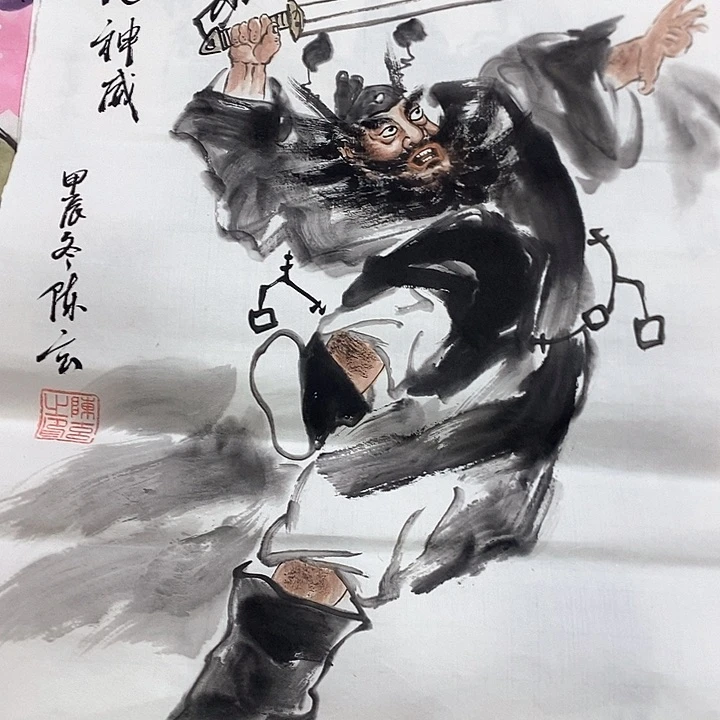 神威
甲辰冬陈云
陳云之印